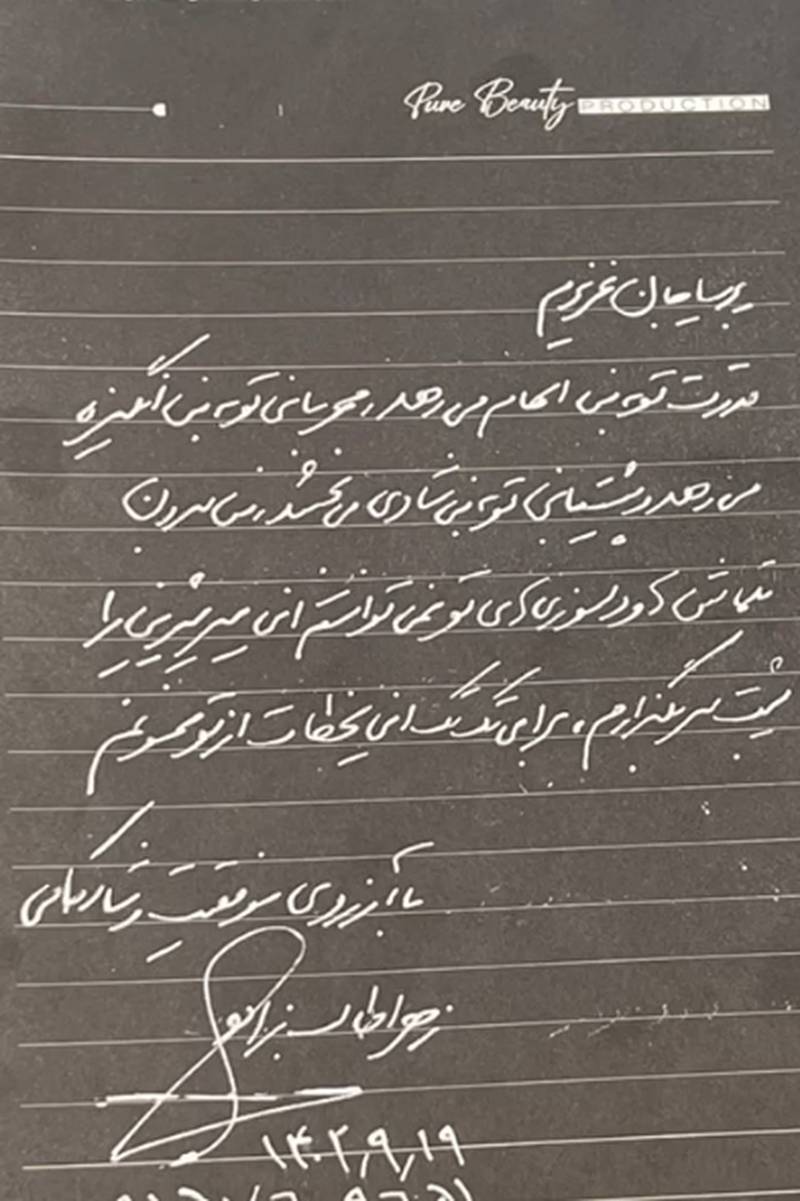 Pure Beauty PRODUCTION
پریسا جان عزیزم
قدرت تو به من الهام می دهد و مهربانی تو به من انگیزه
می دهد و پشتیبانی تو به من شادی می بخشد، من بدون
تلاش ها و دلسوزی های تو نمی توانستم این مسیر شیرین را
پشت سر بگذارم، برای تک تک این لحظات از تو ممنونم
با آرزوی موفقیت و شادکامی
زهرا
۱۴۰۲,۹,۱۹